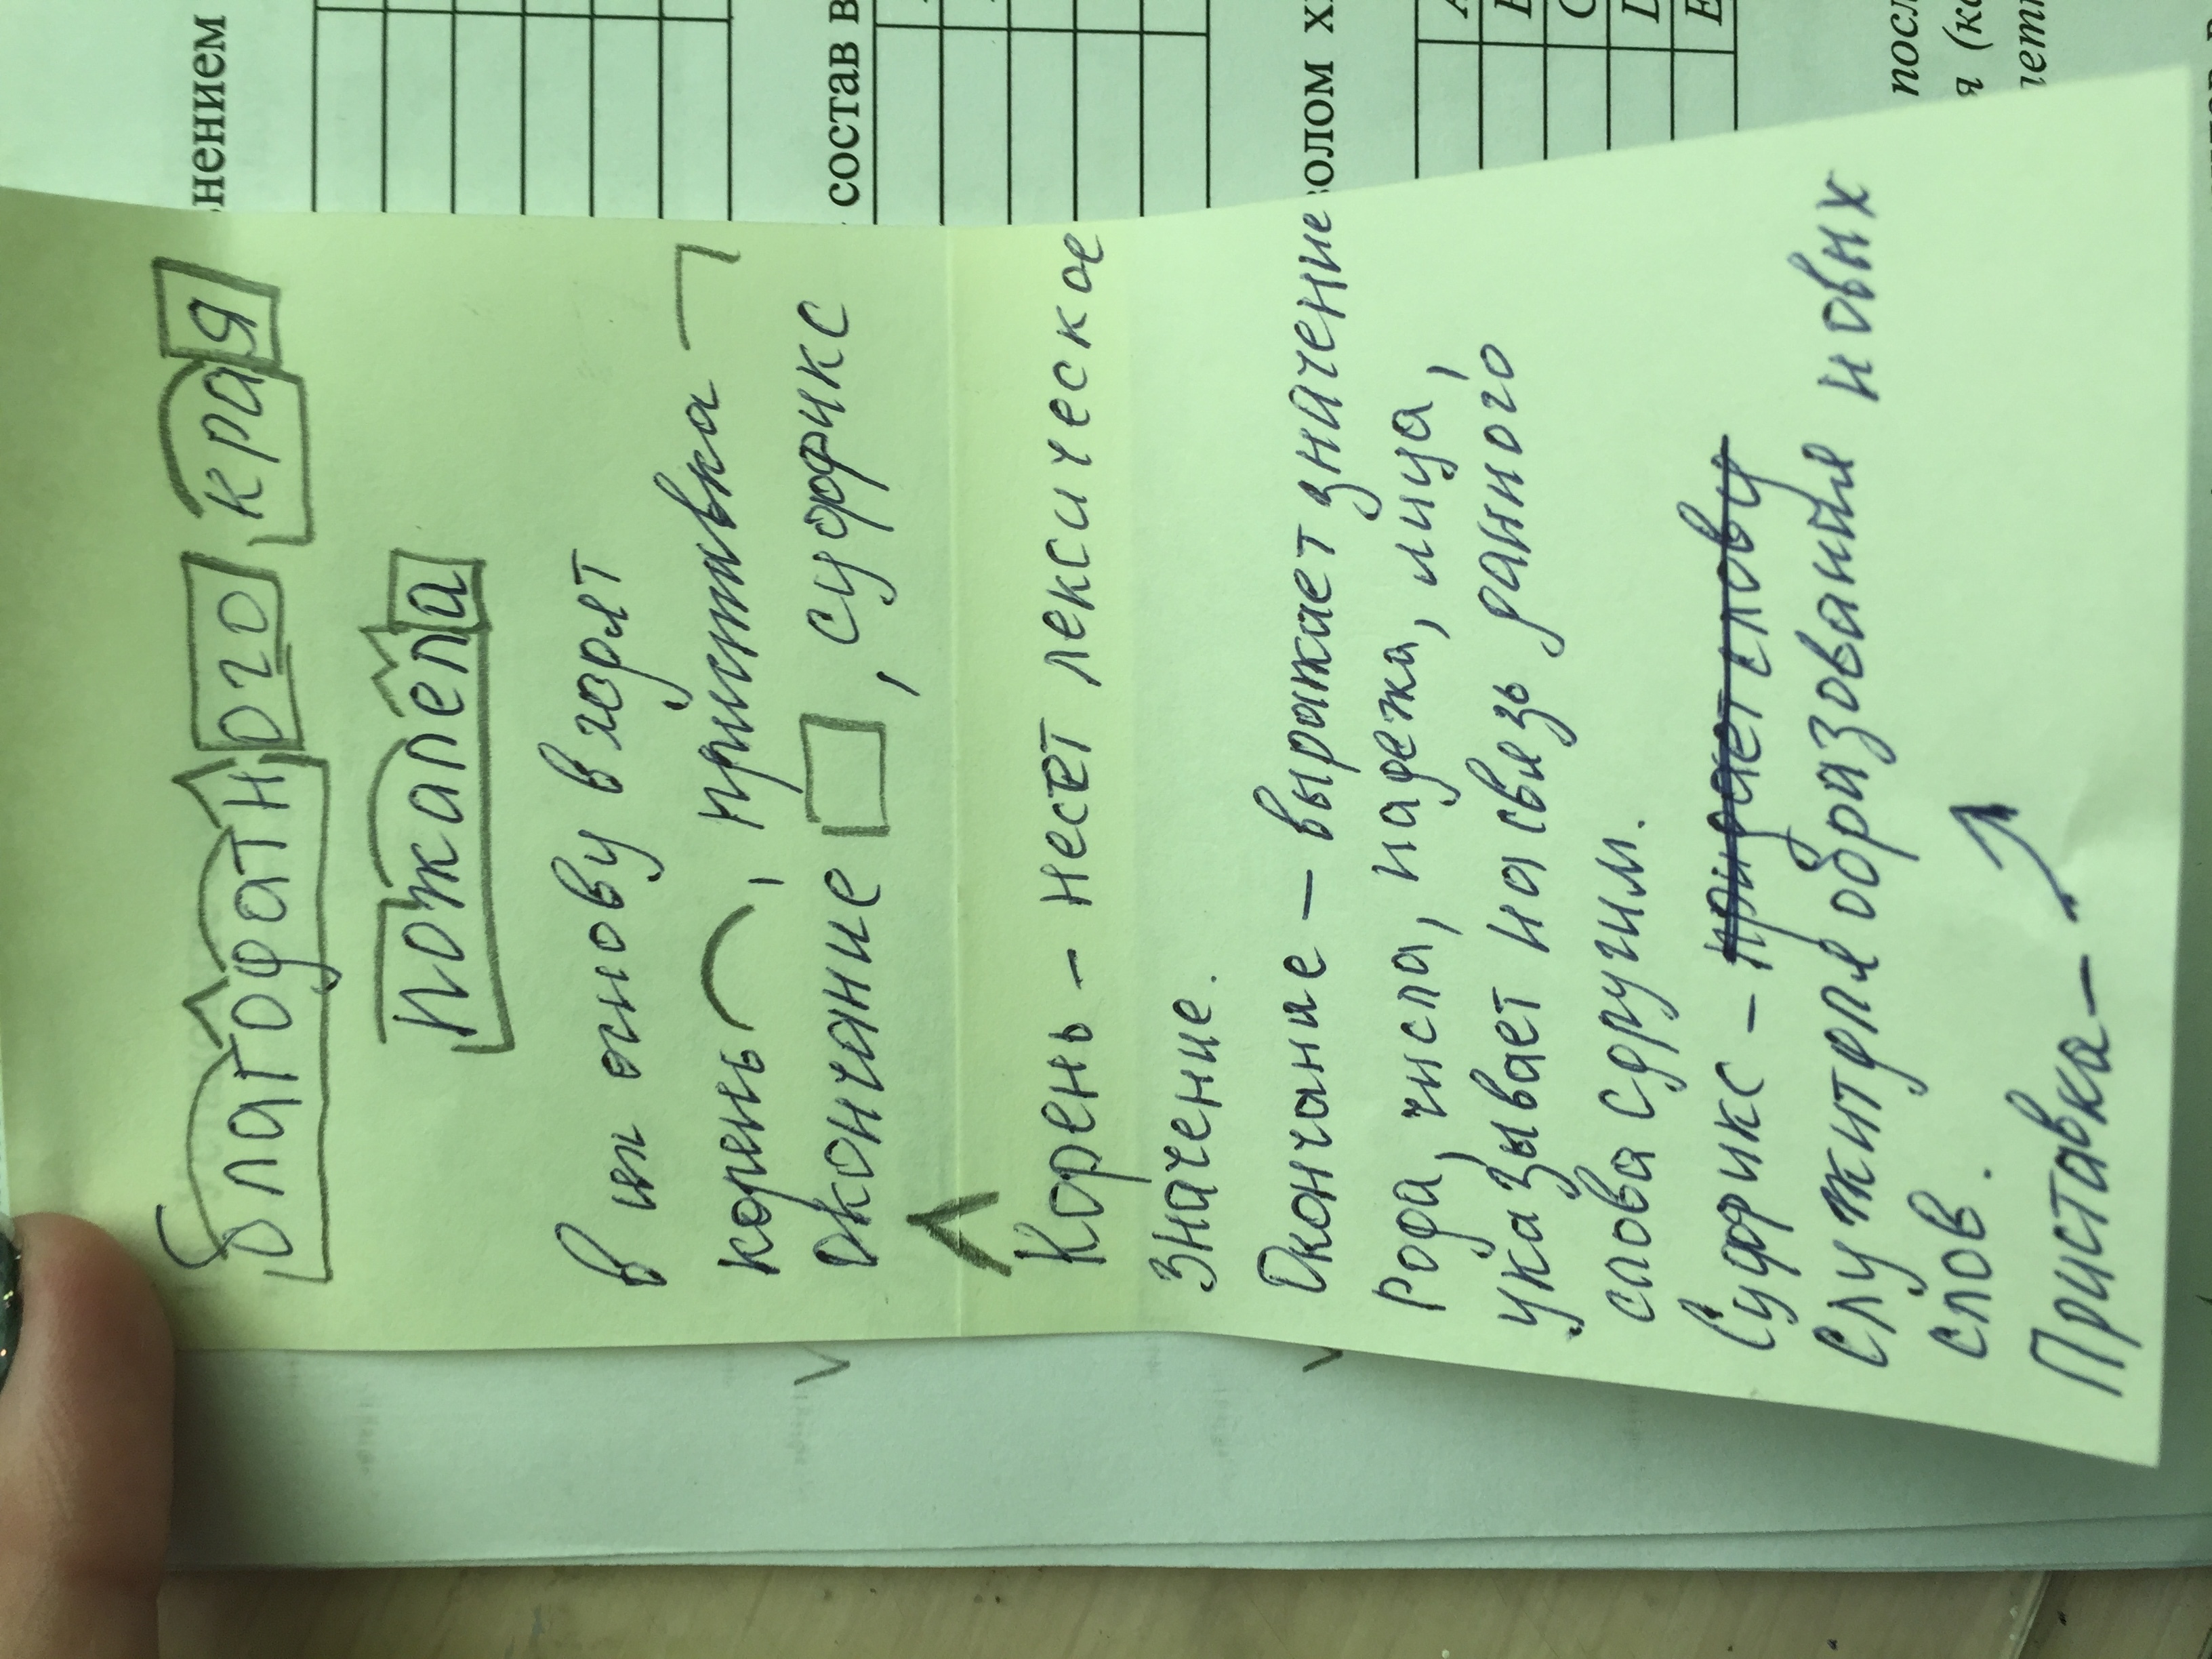 благодатного края
пожалела
В их основу входят
корень, приставка
окончание, суффикс
Корень - несёт лексическое
значение.
Окончание - выражает значение
рода, числа, падежа, лица,
указывает на связь данного
слова с другим.
Суффикс - придает слову
служит для образования новых
слов.
Приставка -
ьнением
состав в
волом х
A
B
C
D
E
посл
я (ко